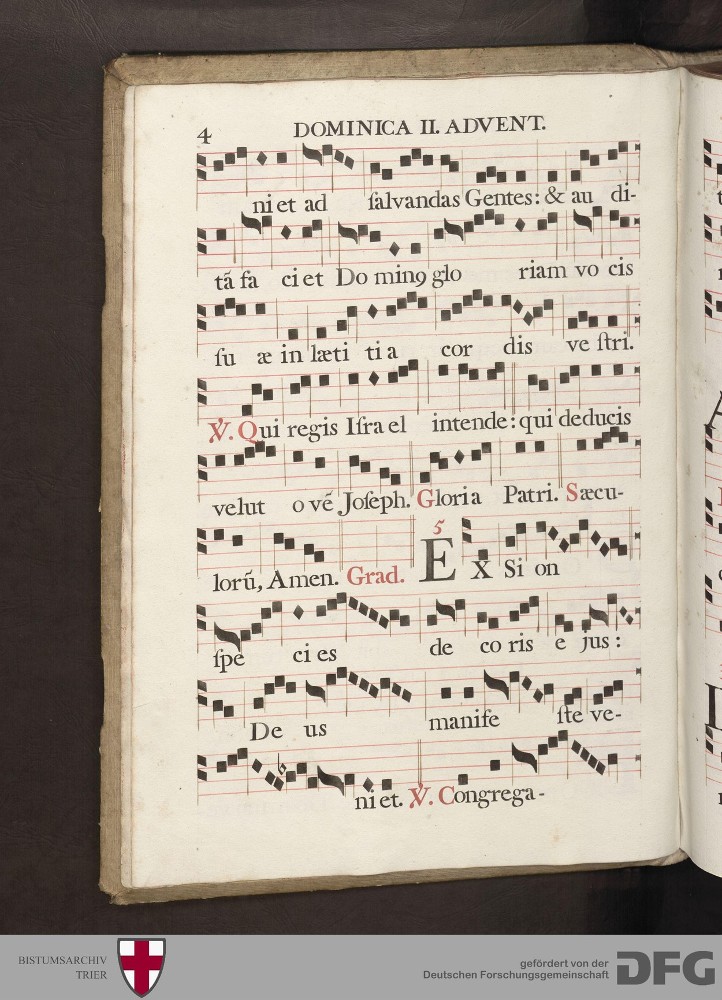 4 DOMINICA II. ADVENT.
ni et ad ſalvandas Gentes: & au di-
tã fa ci et Do minꝯ glo riam vo cis
ſu æ in læti ti a cor dis ve ſtri.
℣. Qui regis Iſra el intende: qui deducis
velut o vẽ Joſeph. Gloria Patri. Sæcu-
lorũ, Amen. Grad. 5 EX Si on
ſpe ci es de co ris e jus:
De us manife ſte ve-
ni et. ℣. Congrega-
BISTUMSARCHIV
TRIER
gefördert von der
Deutschen Forschungsgemeinschaft
DFG